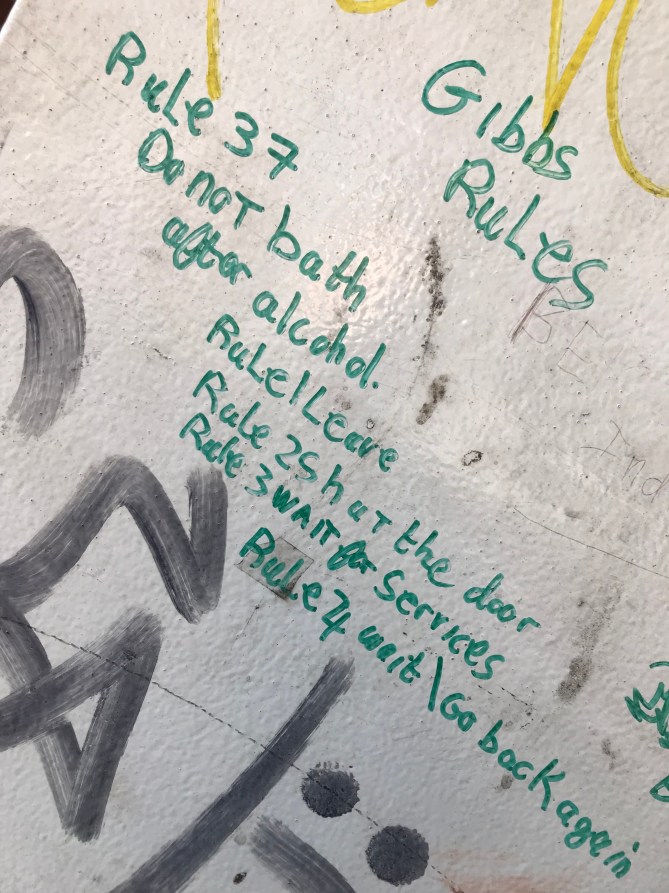 Gibbs
Rules
Rule 37
Do not bath
after alcohol.
Rule 1 Leave
Rule 2 Shut the door
Rule 3 WAIT for Services
Rule 4 wait \ Go back again
BE